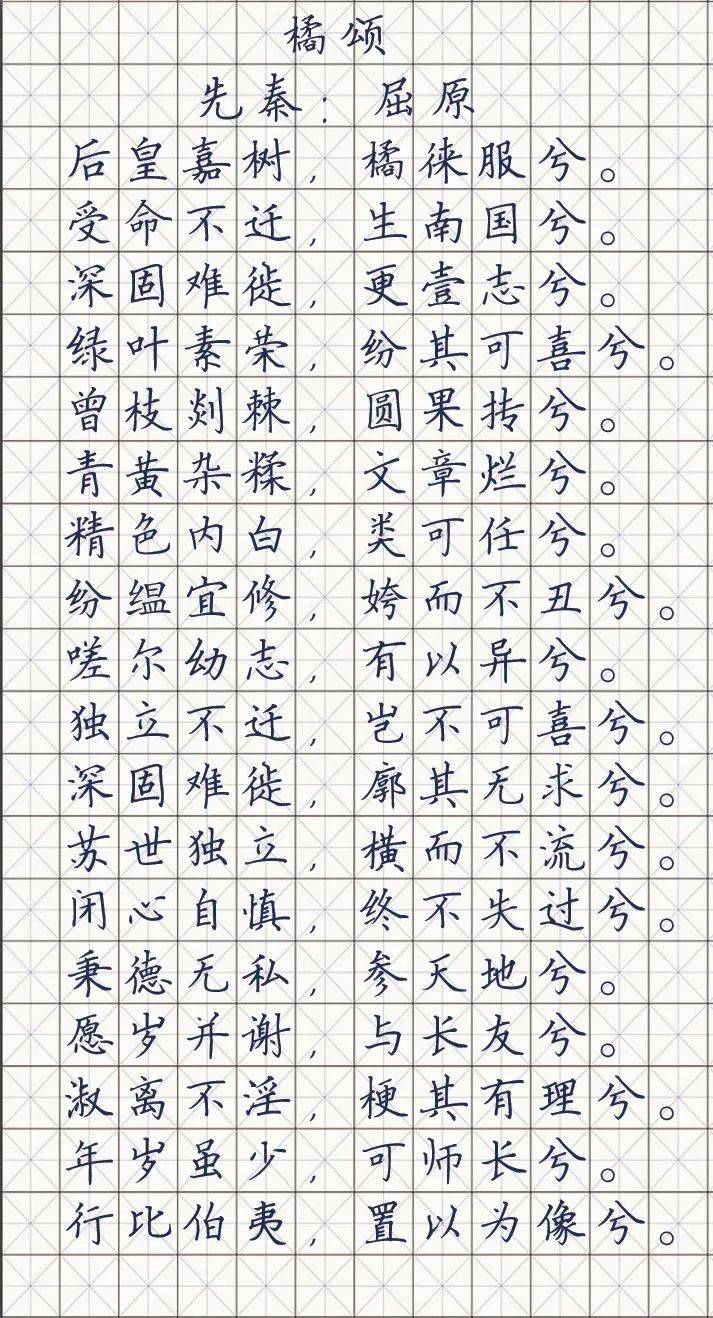 橘颂
先秦：屈原
后皇嘉树，橘徕服兮。
受命不迁，生南国兮。
深固难徙，更壹志兮。
绿叶素荣，纷其可喜兮。
曾枝剡棘，圆果抟兮。
青黄杂糅，文章烂兮。
精色内白，类可任兮。
纷缊宜修，姱而不丑兮。
嗟尔幼志，有以异兮。
独立不迁，岂不可喜兮。
深固难徙，廓其无求兮。
苏世独立，横而不流兮。
闭心自慎，终不失过兮。
秉德无私，参天地兮。
愿岁并谢，与长友兮。
淑离不淫，梗其有理兮。
年岁虽少，可师长兮。
行比伯夷，置以为像兮。